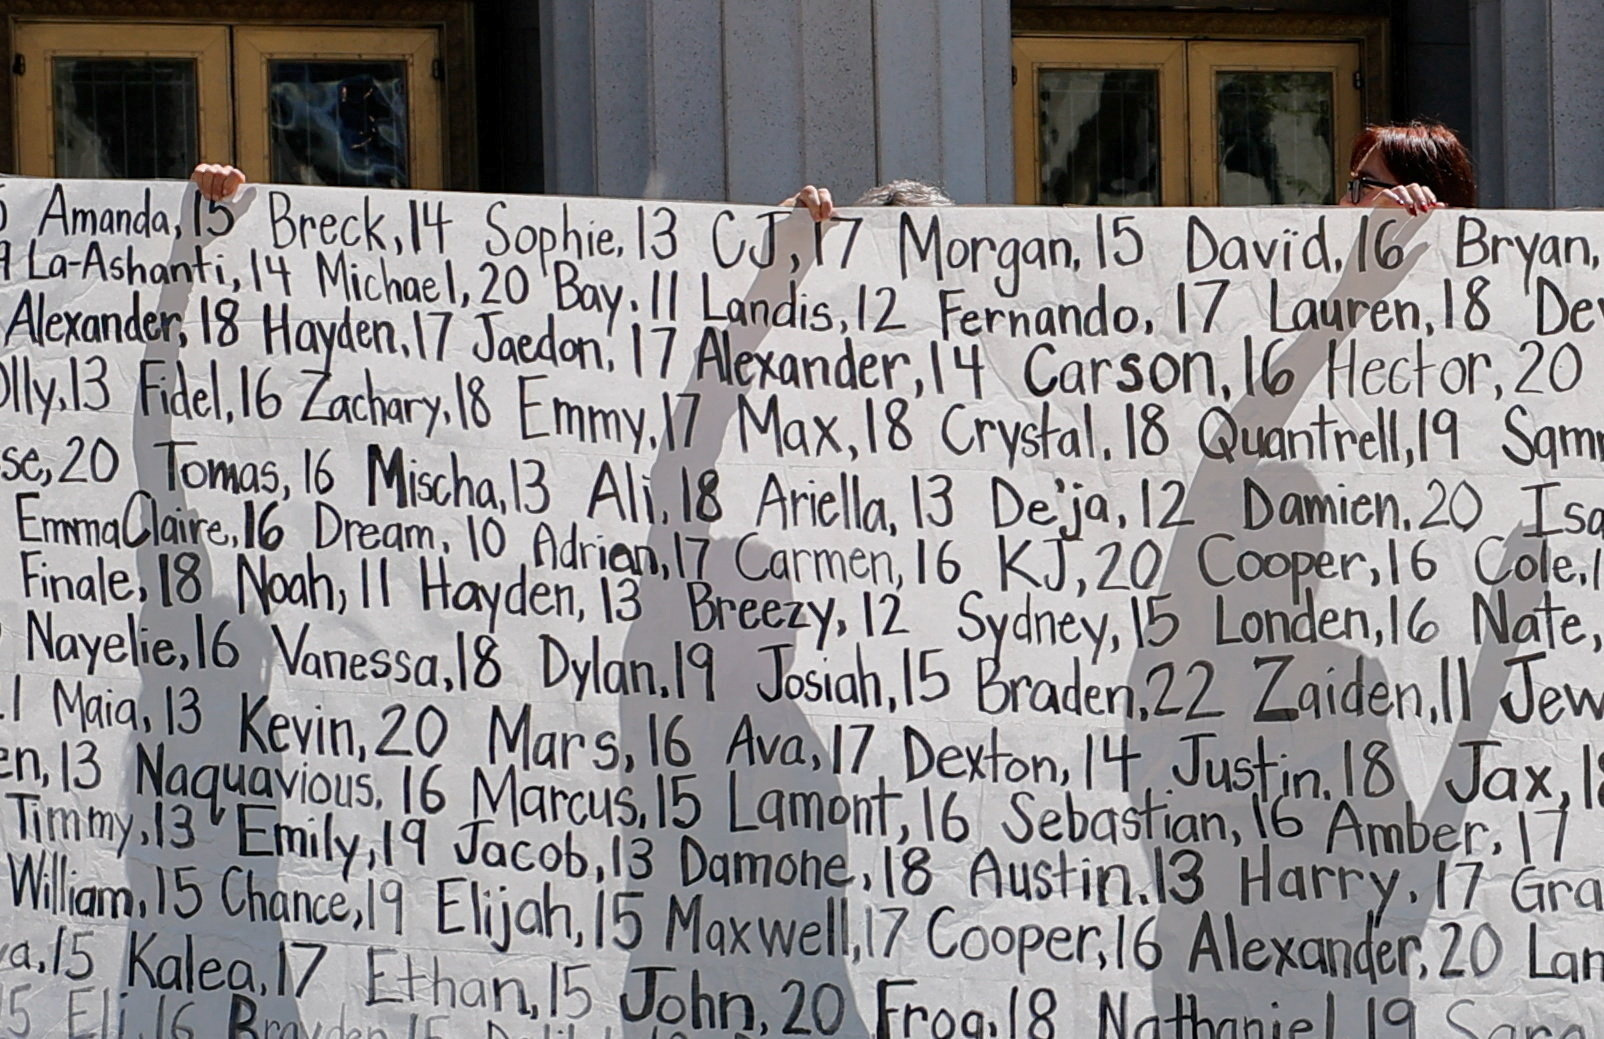 Amanda, 15 Breck, 14 Sophie, 13 CJ, 17 Morgan, 15 David, 16 Bryan,
La-Ashanti, 14 Michael, 20 Bay, 11 Landis, 12 Fernando, 17 Lauren, 18
Alexander, 18 Hayden, 17 Jaedon, 17 Alexander, 14 Carson, 16 Hector, 20
13 Fidel, 16 Zachary, 18 Emmy, 17 Max, 18 Crystal, 18 Quantrell, 19
20 Tomas, 16 Mischa, 13 Ali, 18 Ariella, 13 De'ja, 12 Damien, 20
EmmaClaire, 16 Dream, 10 Adrian, 17 Carmen, 16 KJ, 20 Cooper, 16 Cole,
Finale, 18 Noah, 11 Hayden, 13 Breezy, 12 Sydney, 15 Londen, 16 Nate,
Nayelie, 16 Vanessa, 18 Dylan, 19 Josiah, 15 Braden, 22 Zaiden, 11
Maia, 13 Kevin, 20 Mars, 16 Ava, 17 Dexton, 14 Justin, 18 Jax, 18
13 Naquavious, 16 Marcus, 15 Lamont, 16 Sebastian, 16 Amber, 17
Timmy, 13 Emily, 19 Jacob, 13 Damone, 18 Austin, 13 Harry, 17
William, 15 Chance, 19 Elijah, 15 Maxwell, 17 Cooper, 16 Alexander, 20
15 Kalea, 17 Ethan, 15 John, 20 Frog, 18 Nathaniel, 19
Eli, 16 Brayden, 15